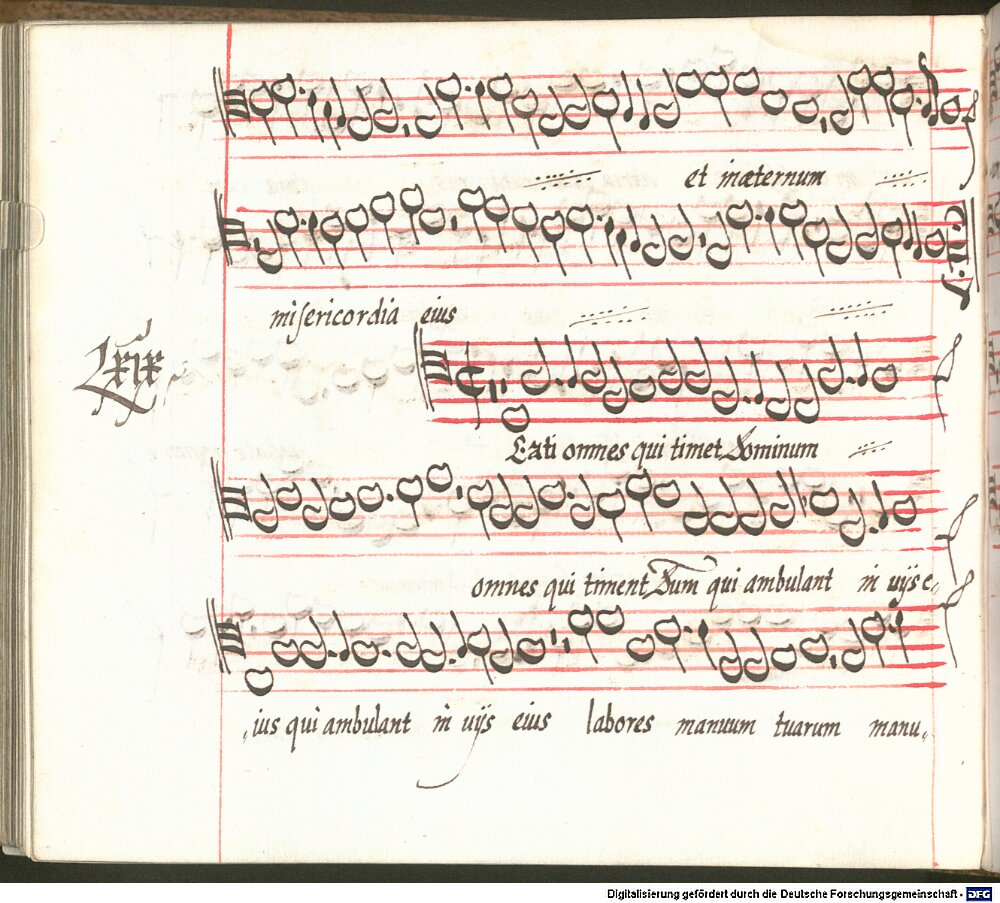 et inæternum
misericordia eius
Lxix
Eati omnes qui timet Dominum
omnes qui timent Dum qui ambulant in uijs e„
„ius qui ambulant in uijs eius labores manuum tuarum manu„
Digitalisierung gefördert durch die Deutsche Forschungsgemeinschaft - DFG